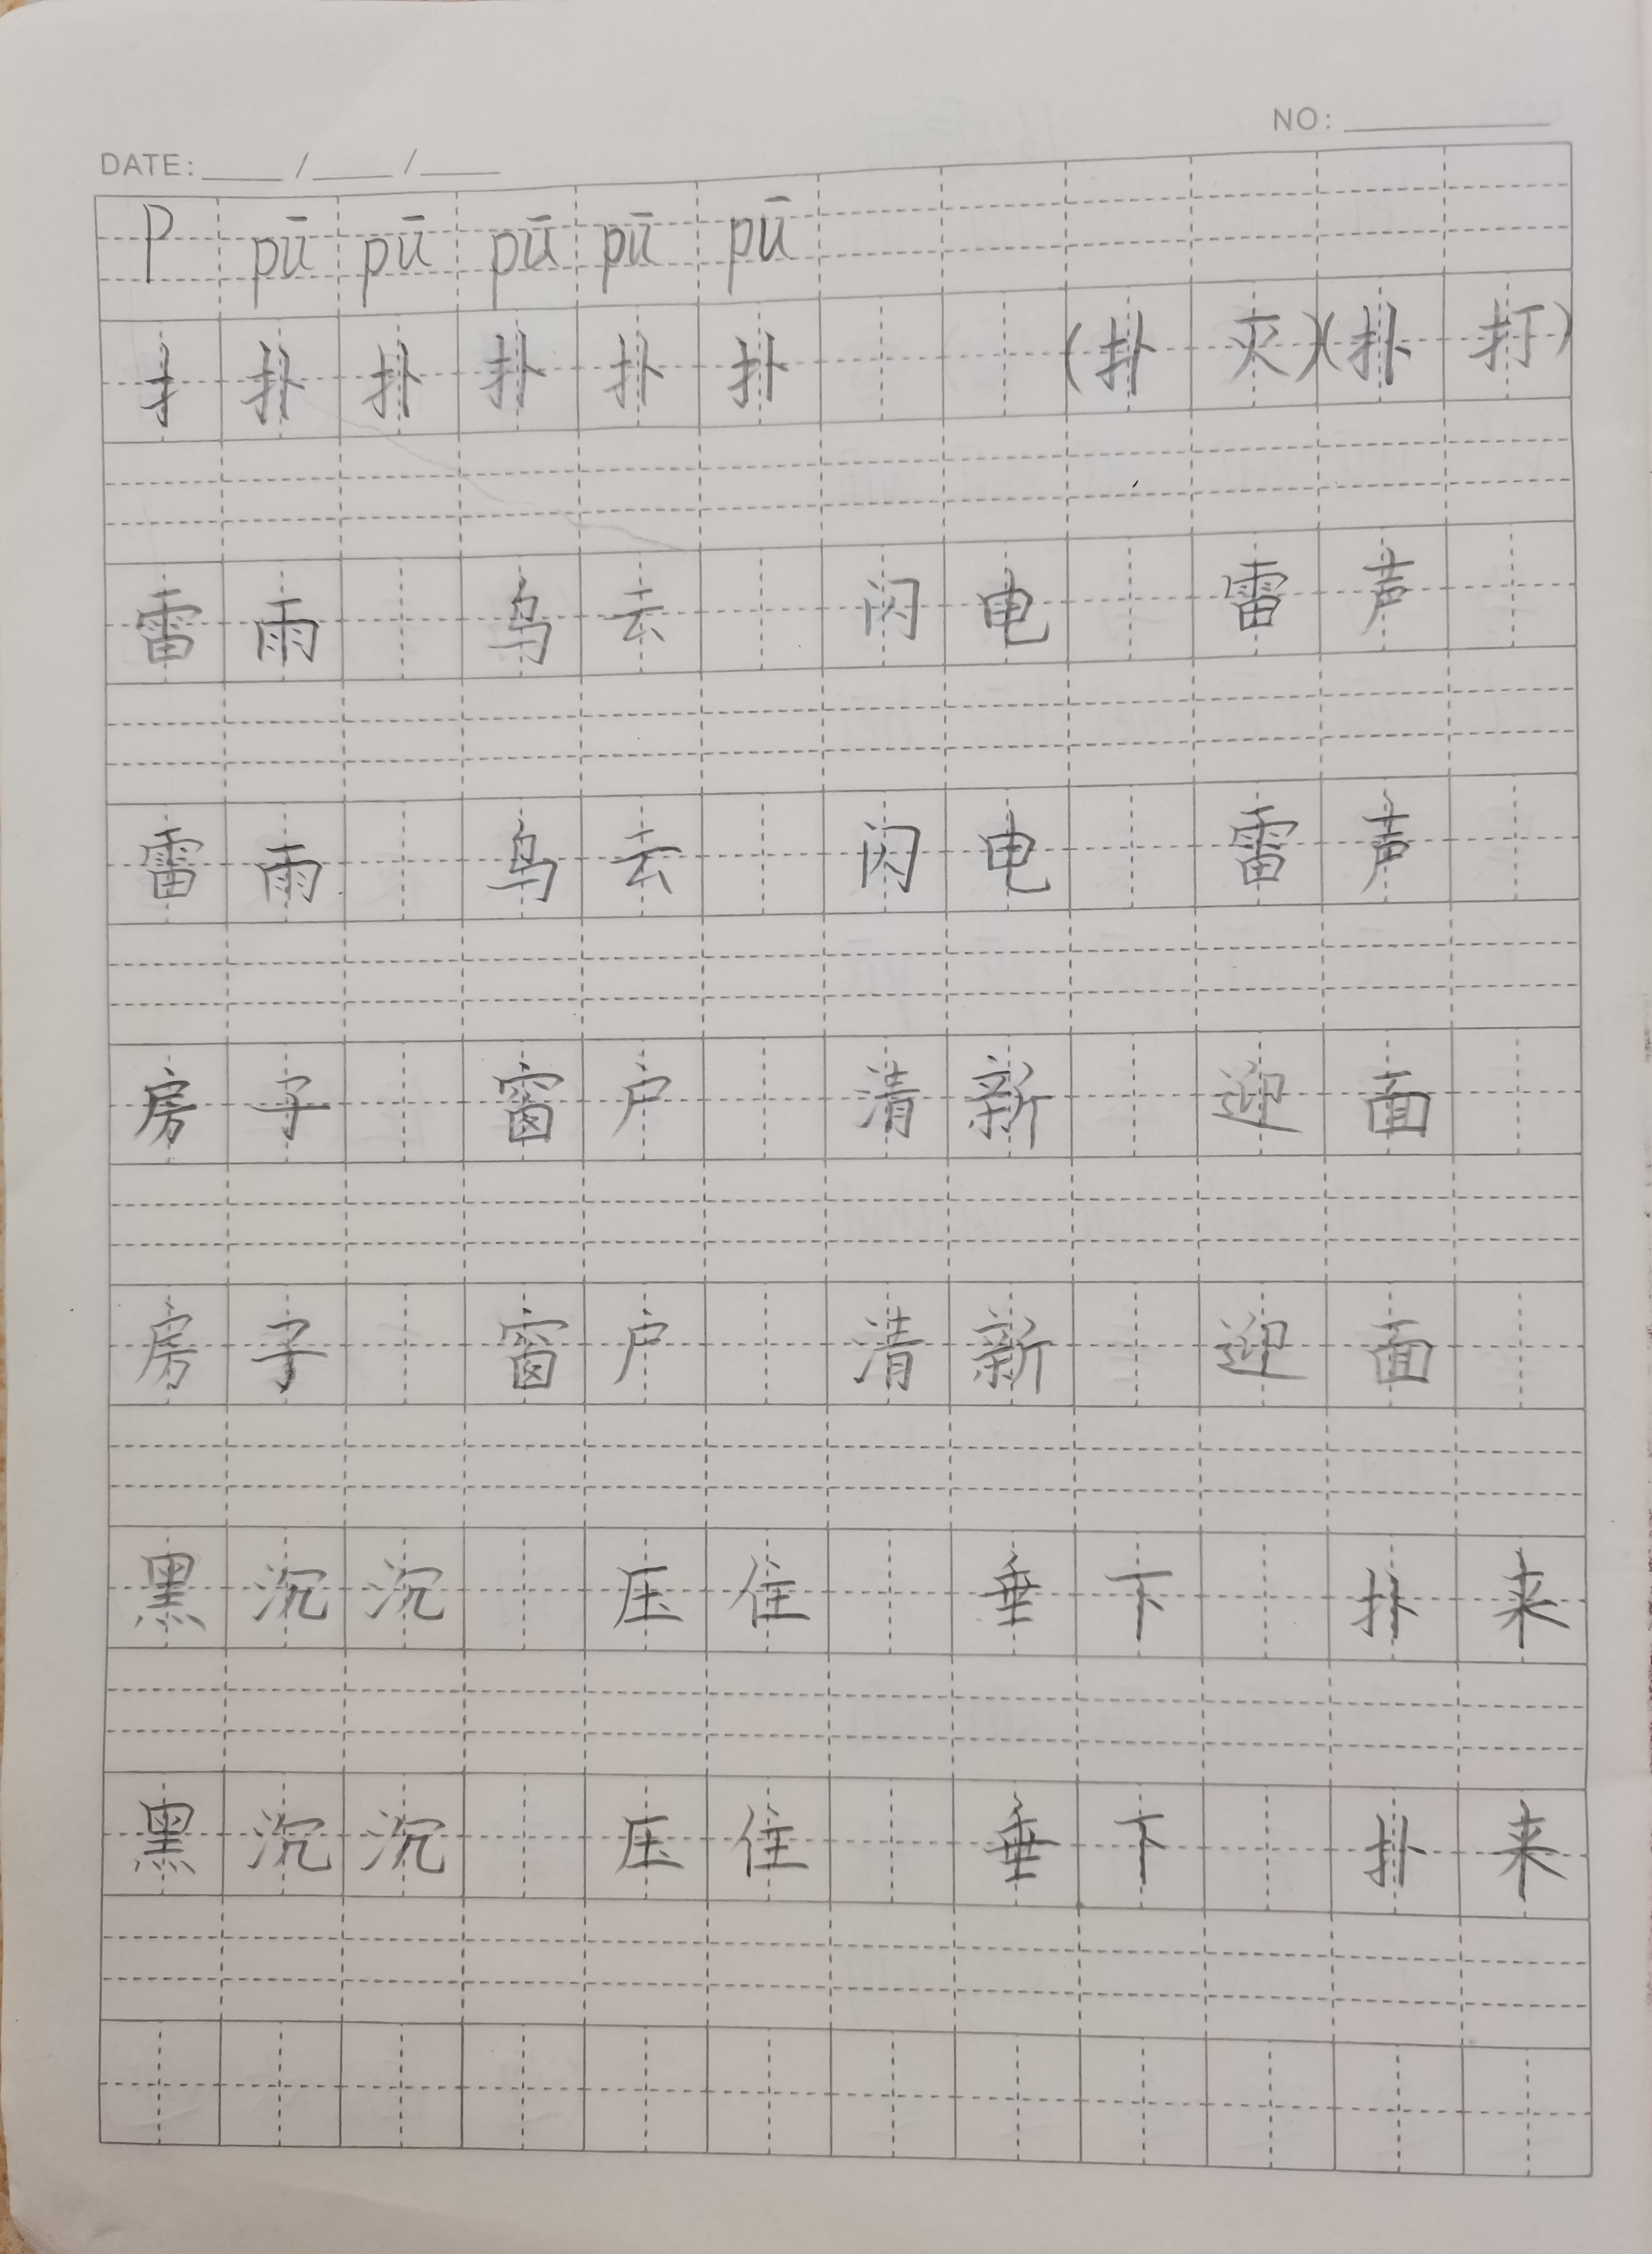 NO:
DATE: / /
P pū pū pū pū pū
扌 扑 扑 扑 扑 扑 (扑灭)(扑打)
雷雨 乌云 闪电 雷声
雷雨 乌云 闪电 雷声
房子 窗户 清新 迎面
房子 窗户 清新 迎面
黑沉沉 压住 垂下 扑来
黑沉沉 压住 垂下 扑来